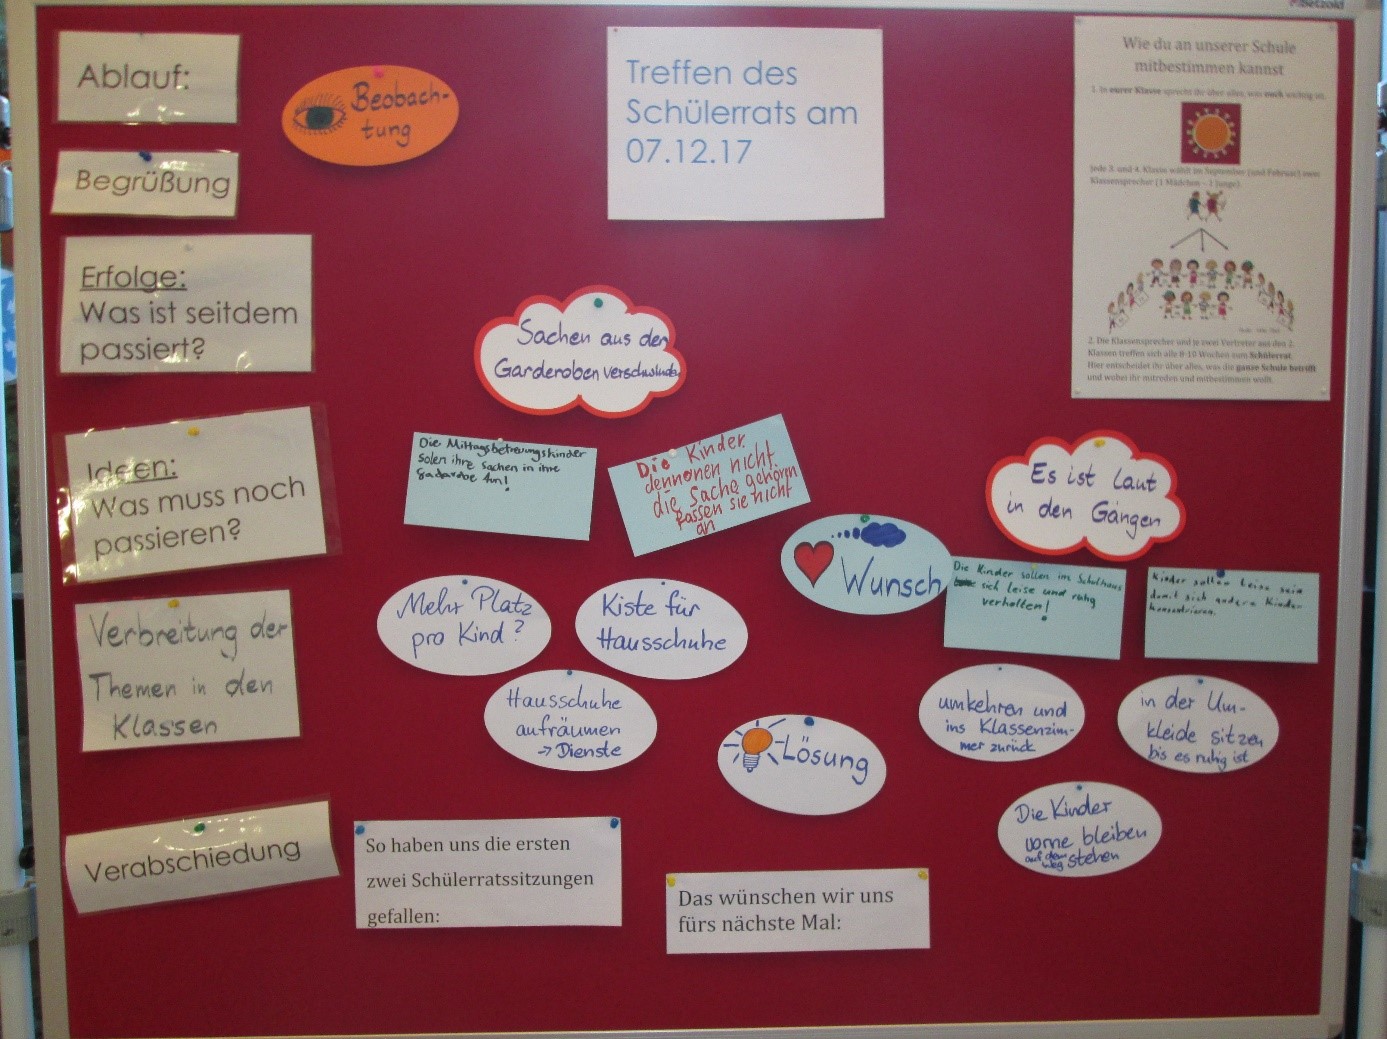 Betzold
Ablauf:
Begrüßung
Erfolge:
Was ist seitdem
passiert?
Ideen:
Was muss noch
passieren?
Verbreitung der
Themen in den
Klassen
Verabschiedung
Beobach-
tung
Treffen des
Schülerrats am
07.12.17
Wie du an unserer Schule
mitbestimmen kannst
1. In eurer Klasse sprecht ihr über alles, was euch wichtig ist.
Jede 3. und 4. Klasse wählt im September (und Februar) zwei
Klassensprecher (1 Mädchen – 1 Junge).
2. Die Klassensprecher und je zwei Vertreter aus den 2.
Klassen treffen sich alle 8-10 Wochen zum Schülerrat.
Hier entscheidet ihr über alles, was die ganze Schule betrifft
und wobei ihr mitreden und mitbestimmen wollt.
Sachen aus den
Garderoben verschwinden
Die Mittagsbetreuungskinder
solen ihre Sachen in ihre
gadardoe tun!
Die Kinder
dennenen nicht
die Sache gehören
fassen sie nicht
an
Wunsch
Mehr Platz
pro Kind?
Kiste für
Hausschuhe
Hausschuhe
aufräumen
→ Dienste
Lösung
Es ist laut
in den Gängen
Die Kinder sollen im Schulhaus
sich leise und ruhig
verhalten!
Kinder sollen leise sein
damit sich andere Kinder
konzentrieren.
umkehren und
ins Klassenzim-
mer zurück
in der Um-
kleide sitzen
bis es ruhig ist
Die Kinder
vorne bleiben
auf dem
Weg stehen
So haben uns die ersten
zwei Schülerratssitzungen
gefallen:
Das wünschen wir uns
fürs nächste Mal: